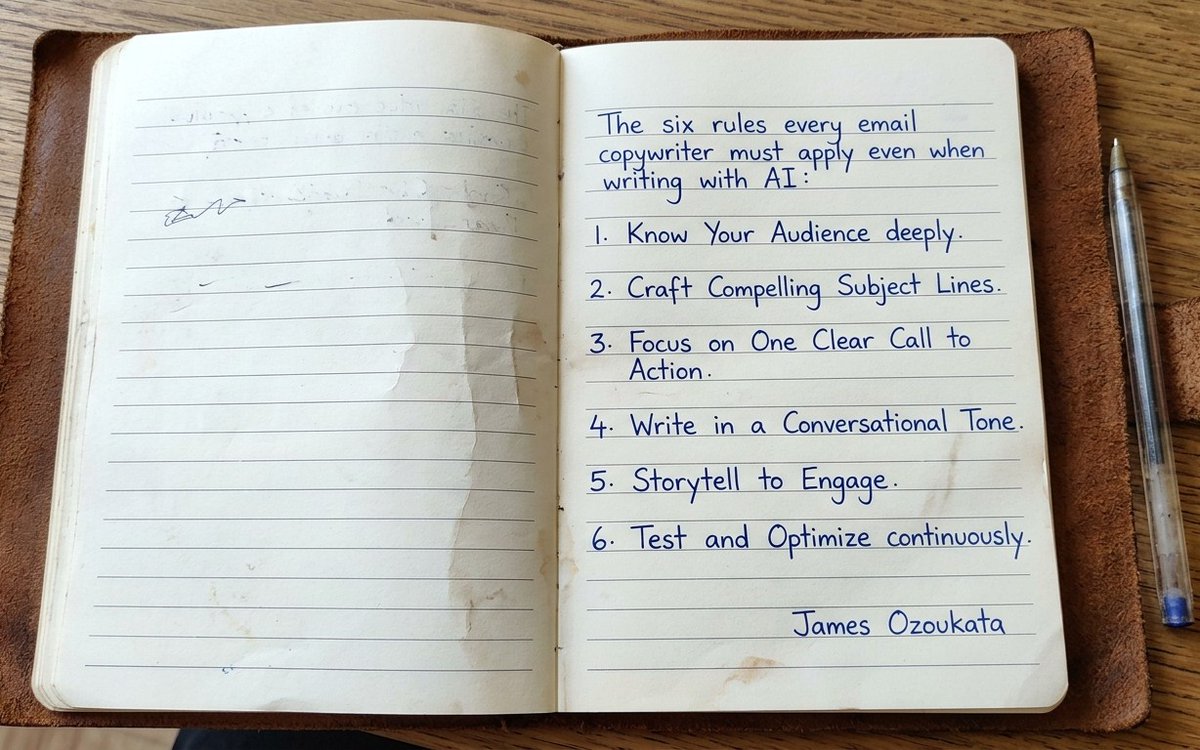 The six rules every email
copywriter must apply even when
writing with AI:
1. Know Your Audience deeply.
2. Craft Compelling Subject Lines.
3. Focus on One Clear Call to
Action.
4. Write in a Conversational Tone.
5. Storytell to Engage.
6. Test and Optimize continuously.
James Ozoukata